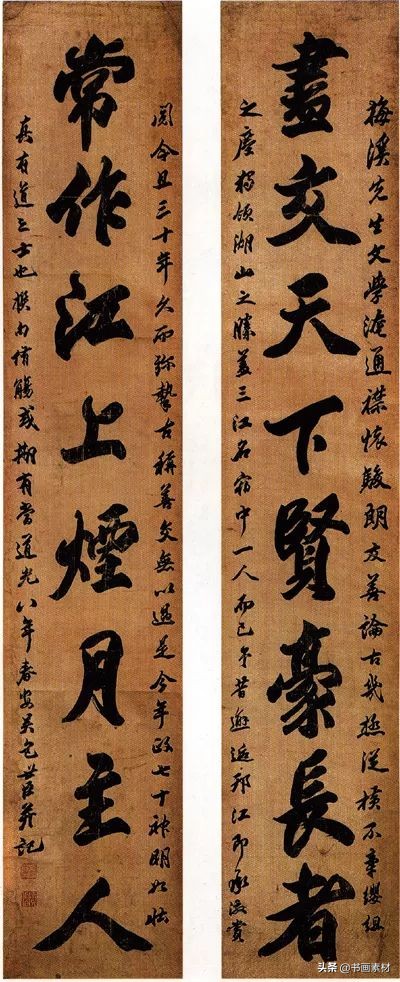 盡交天下賢豪長者
常作江上煙月主人
梅溪先生文學淹通襟懷駿朗友善論古幾極從橫不事纓組
之塵獨領湖山之勝蓋三江名宿中一人而已予昔邂逅邗江即承激賞
閱今且三十年久而弥摯古稱善交無以過是今年政七十神明如怯
真有道之士也撰句侑觴或
有當道光八年春安吴包世臣并記
头条@书画素材